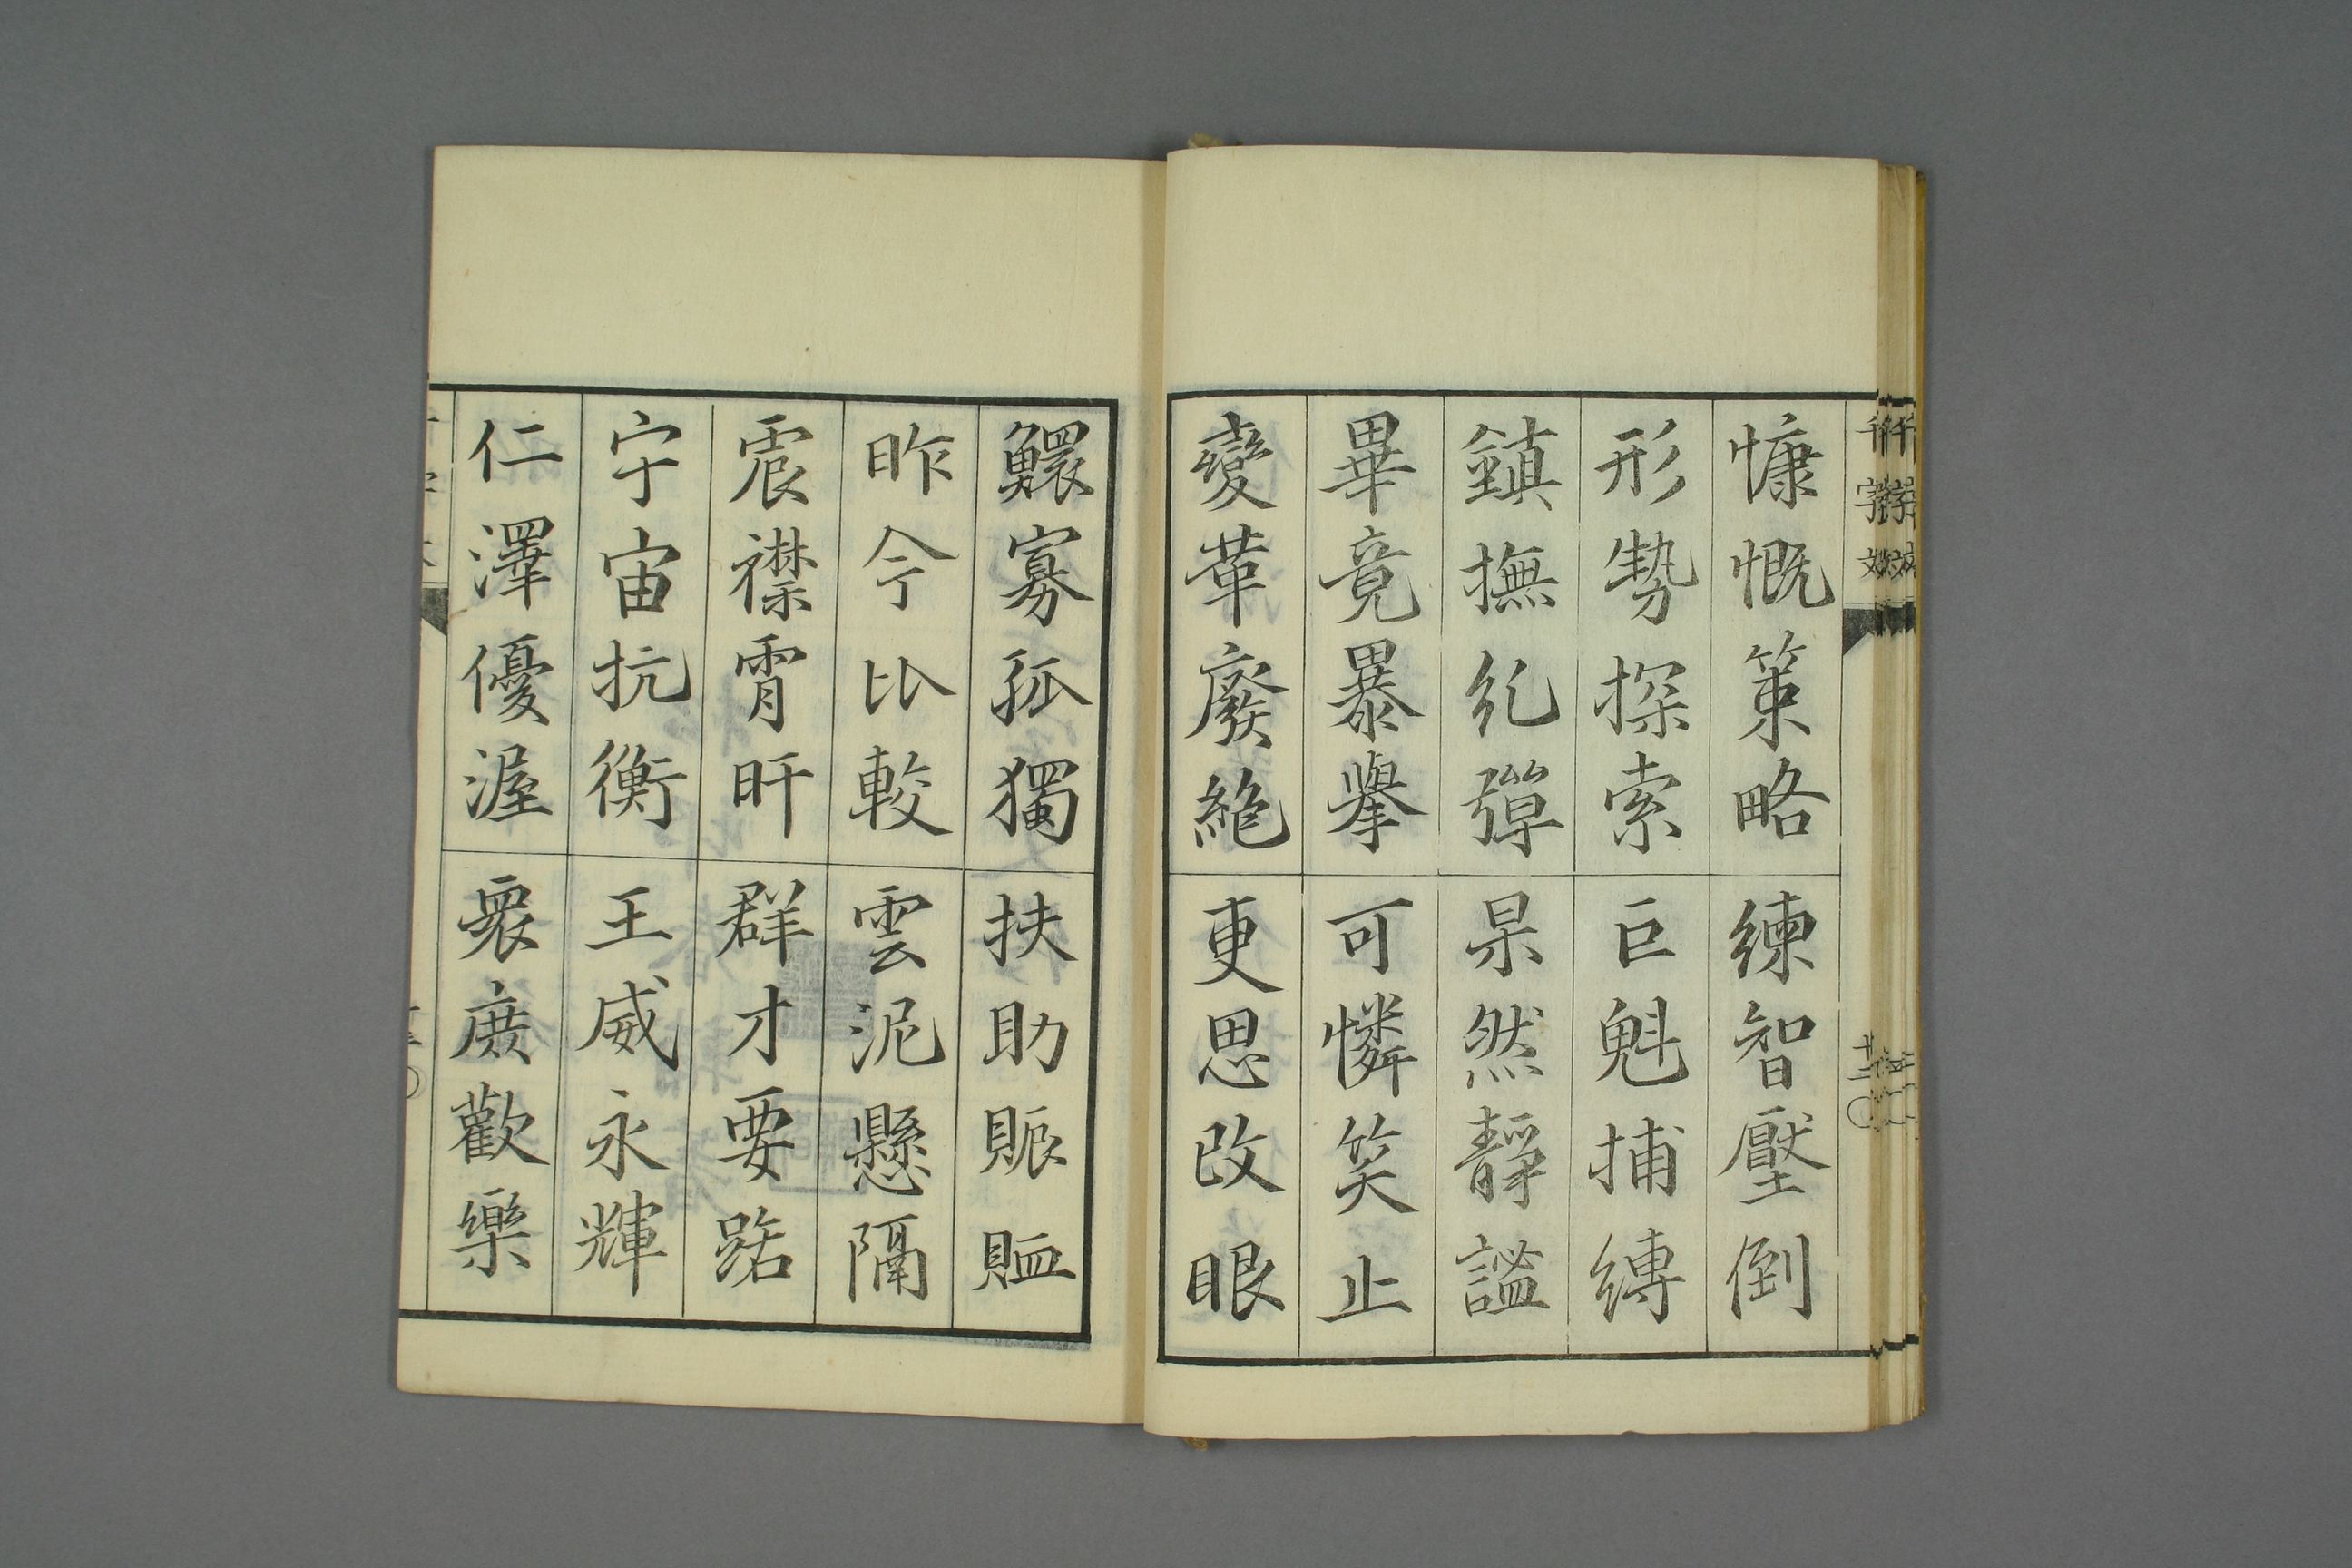 慷慨策略
練智壓倒
形勢探索
巨魁捕縛
鎮撫糺彈
杲然靜謐
畢竟暴擧
可憐笑止
變革廢絶
更思改眼
鰥寡孤獨
扶助賑賉
昨今比較
雲泥懸隔
宸襟宵旰
群才要路
宇宙抗衡
王威永輝
仁澤優渥
衆庶歡樂
千字文
十二